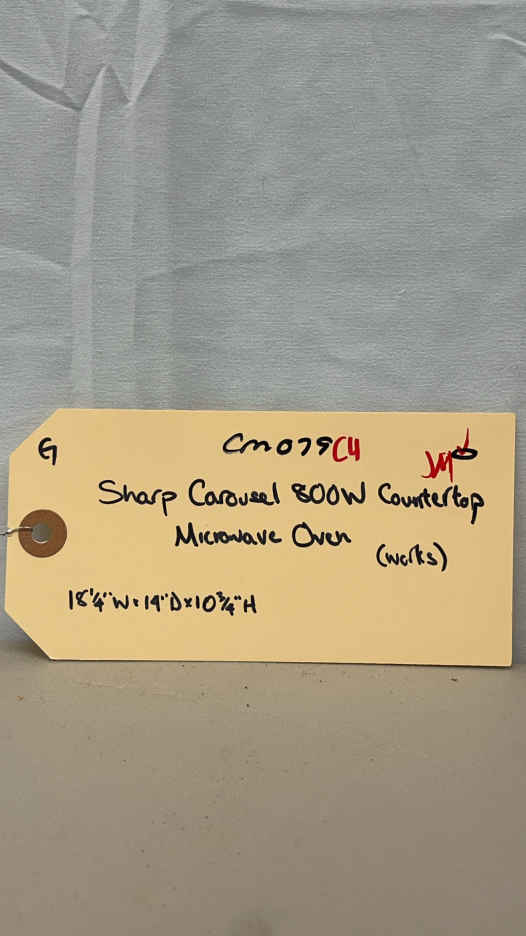 G
Cm079 C4
Sharp Carousel 800W Countertop
Microwave Oven
(works)
18¼"W x 19"D x 10¾"H